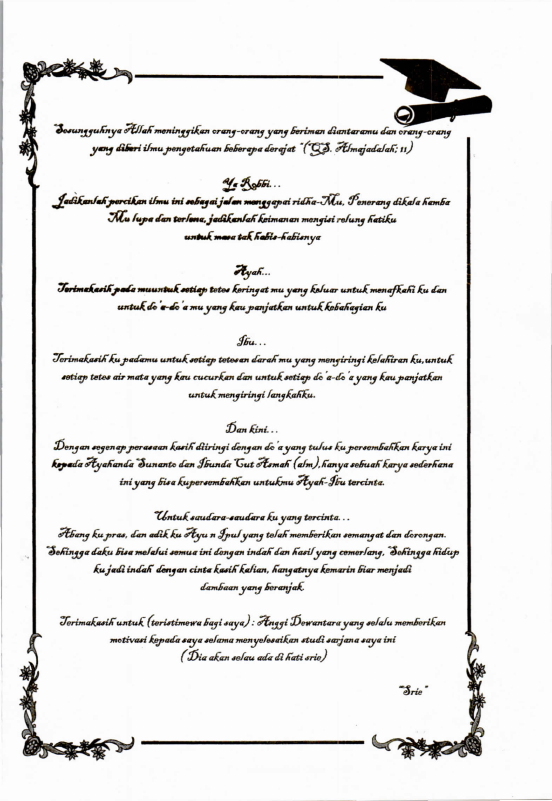 "Sesungguhnya Allah meninggikan orang-orang yang beriman diantaramu dan orang-orang
yang diberi ilmu pengetahuan beberapa derajat "(QS. Almajadalah; 11)
Ya Robbi...
Jadikanlah percikan ilmu ini sebagai jalan menggapai ridha-Mu, Penerang dikala hamba
Mu lupa dan terlena, jadikanlah keimanan mengisi relung hatiku
untuk masa tak habis-habisnya
Ayah...
Terimakasih pada muuntuk setiap tetes keringat mu yang keluar untuk menafkahi ku dan
untuk do'a-do'a mu yang kau panjatkan untuk kebahagian ku
Ibu...
Terimakasih ku padamu untuk setiap tetesan darah mu yang mengiringi kelahiran ku, untuk
setiap tetes air mata yang kau cucurkan dan untuk setiap do'a-do'a yang kau panjatkan
untuk mengiringi langkahku.
Dan kini...
Dengan segenap perasaan kasih diiringi dengan do'a yang tulus ku persembahkan karya ini
kepada Ayahanda Sunanto dan Ibunda Cut Asmah (alm), hanya sebuah karya sederhana
ini yang bisa kupersembahkan untukmu Ayah-Ibu tercinta.
Untuk saudara-saudara ku yang tercinta...
Abang ku pras, dan adik ku Ayu n Ipul yang telah memberikan semangat dan dorongan.
Sehingga daku bisa melalui semua ini dengan indah dan hasil yang cemerlang, Sehingga hidup
ku jadi indah dengan cinta kasih kalian, hangatnya kemarin biar menjadi
dambaan yang beranjak
Terimakasih untuk (teristimewa bagi saya) : Anggi Dewantara yang selalu memberikan
motivasi kepada saya selama menyelesaikan studi sarjana saya ini
(Dia akan selau ada di hati srie)
"Srie"